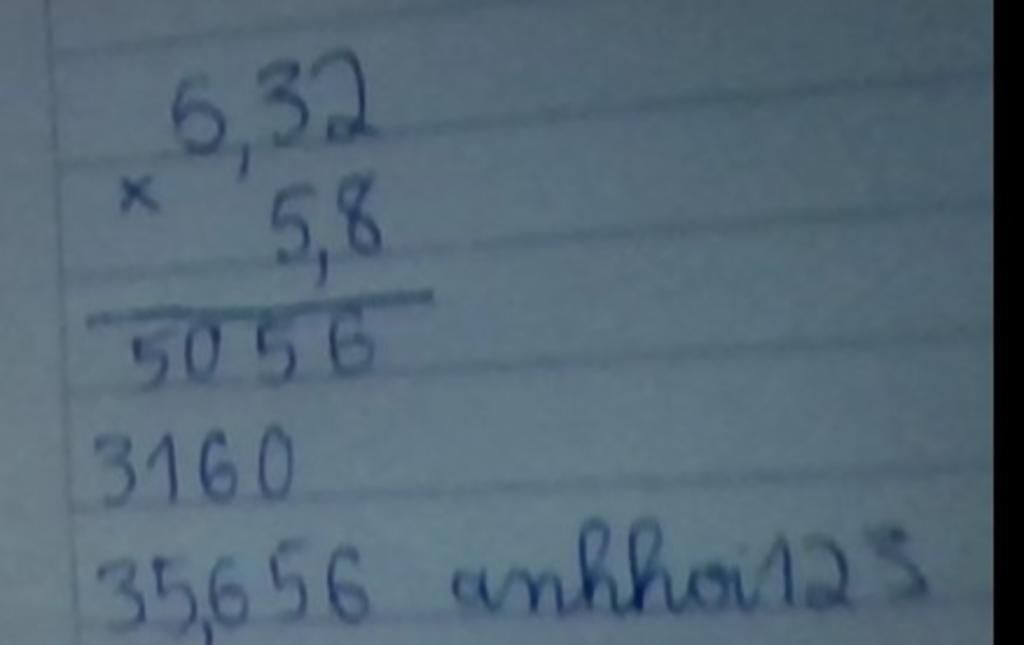 6,32
×
5,8
5056
3160
35,656 anhhoi123